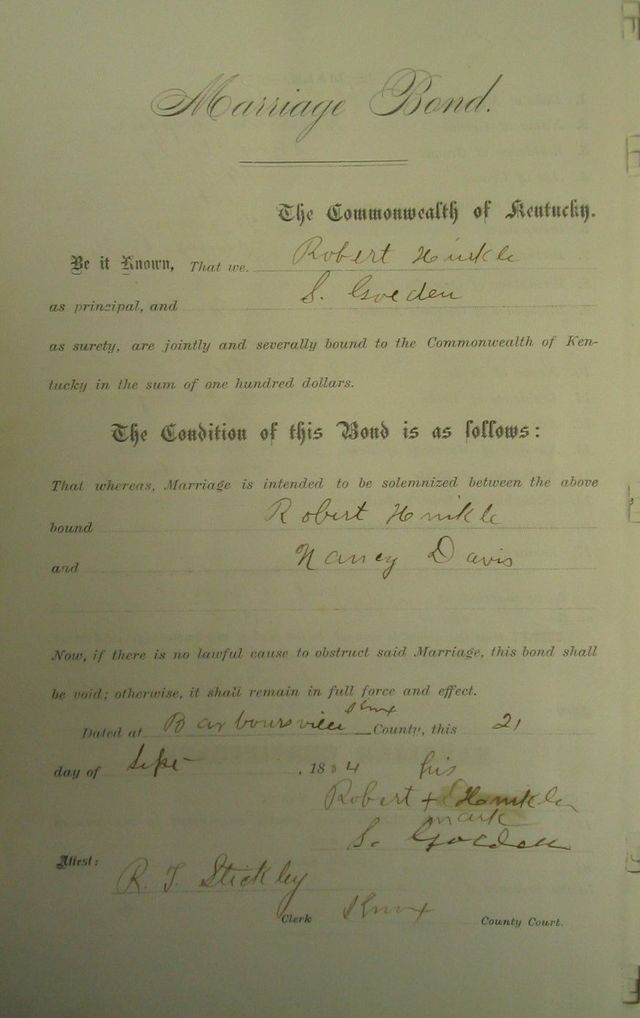 Marriage Bond.
The Commonwealth of Kentucky.
Be it Known, That we Robert Hinkle
as principal, and S. Goeden
as surety, are jointly and severally bound to the Commonwealth of Ken-
tucky in the sum of one hundred dollars.
The Condition of this Bond is as follows:
That whereas, Marriage is intended to be solemnized between the above
bound Robert Hinkle
and Nancy Davis
Now, if there is no lawful cause to obstruct said Marriage, this bond shall
be void; otherwise, it shall remain in full force and effect.
Dated at Barboursville Knox County, this 21
day of Sept , 18 4 his
Robert + Hinkle
mark
S. Goeden
Attest: R. T. Stickley
Clerk Knox County Court.